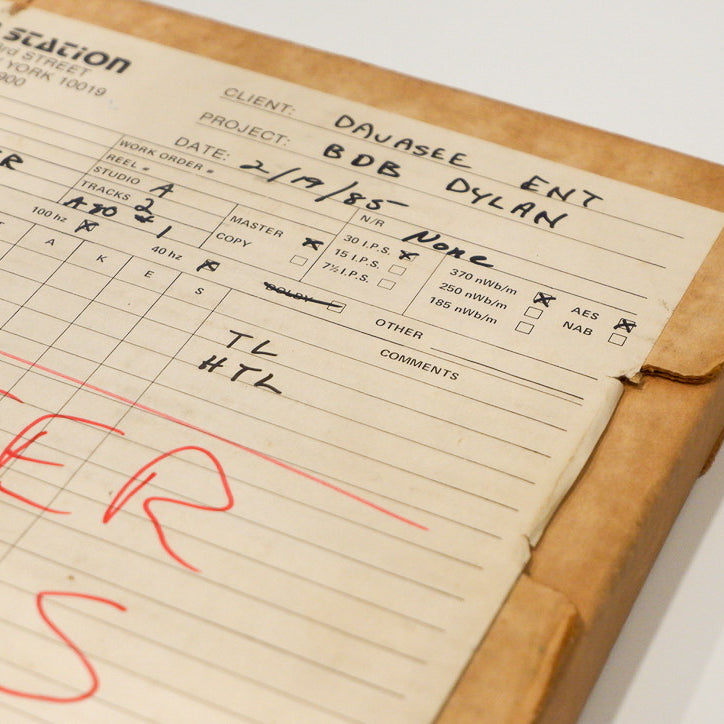 STATION
3rd STREET
YORK 10019
900
CLIENT: DAVASEE ENT
PROJECT: BOB DYLAN
DATE: 2/19/85
WORK ORDER #
REEL #
STUDIO A
TRACKS 2
A80 #1
MASTER
COPY
N/R None
30 I.P.S.
15 I.P.S.
7½ I.P.S.
370 nWb/m
250 nWb/m
185 nWb/m
AES
NAB
100 hz
40 hz
DOLBY
OTHER
A K E S
COMMENTS
TL
HTL
ER
S